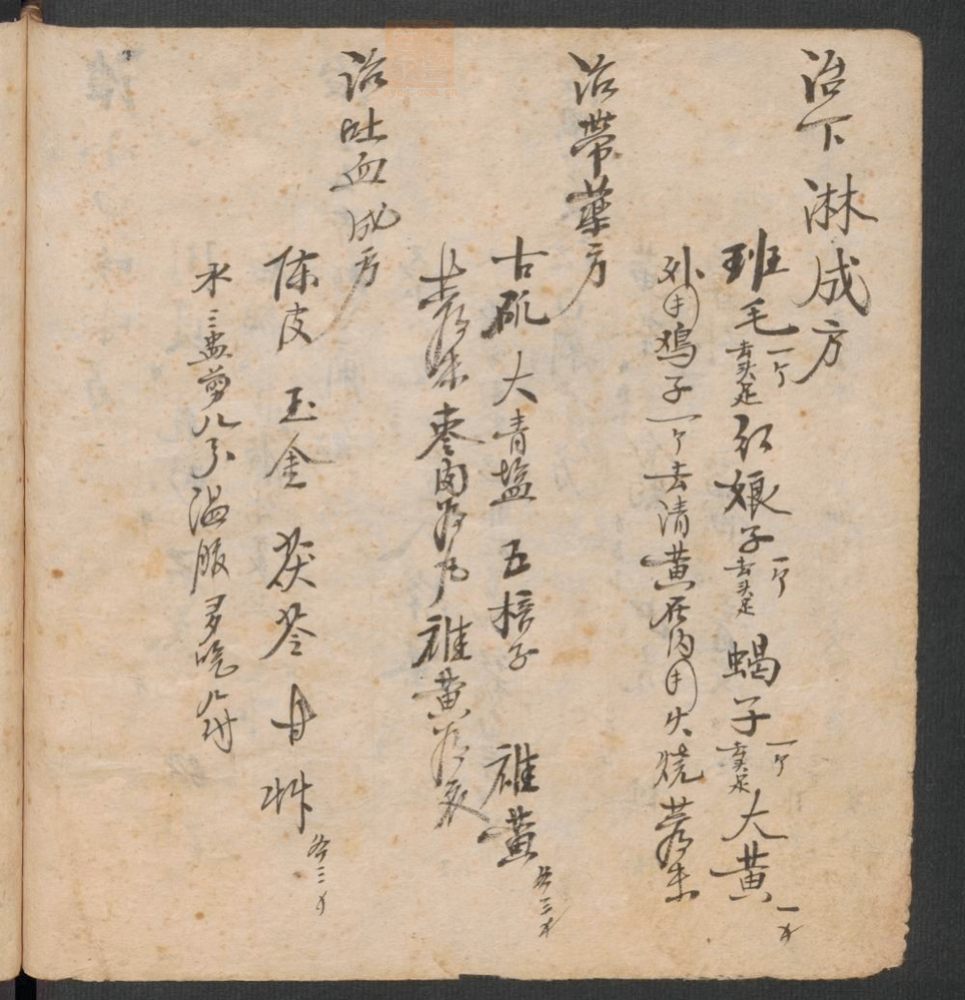 治下淋成方
班毛一个去头足 红娘子一个去头足 蝎子一个去头足 大黄一才
外用鸡子一个去清黄在内用火烧共为末
治带药方
古矾 大青盐 五棓子 雄黄各三才
共为末枣肉为丸雄黄为衣
治吐血成方
陈皮 玉金 茯苓 甘草各三才
水三盅剪八分温服多吃几付